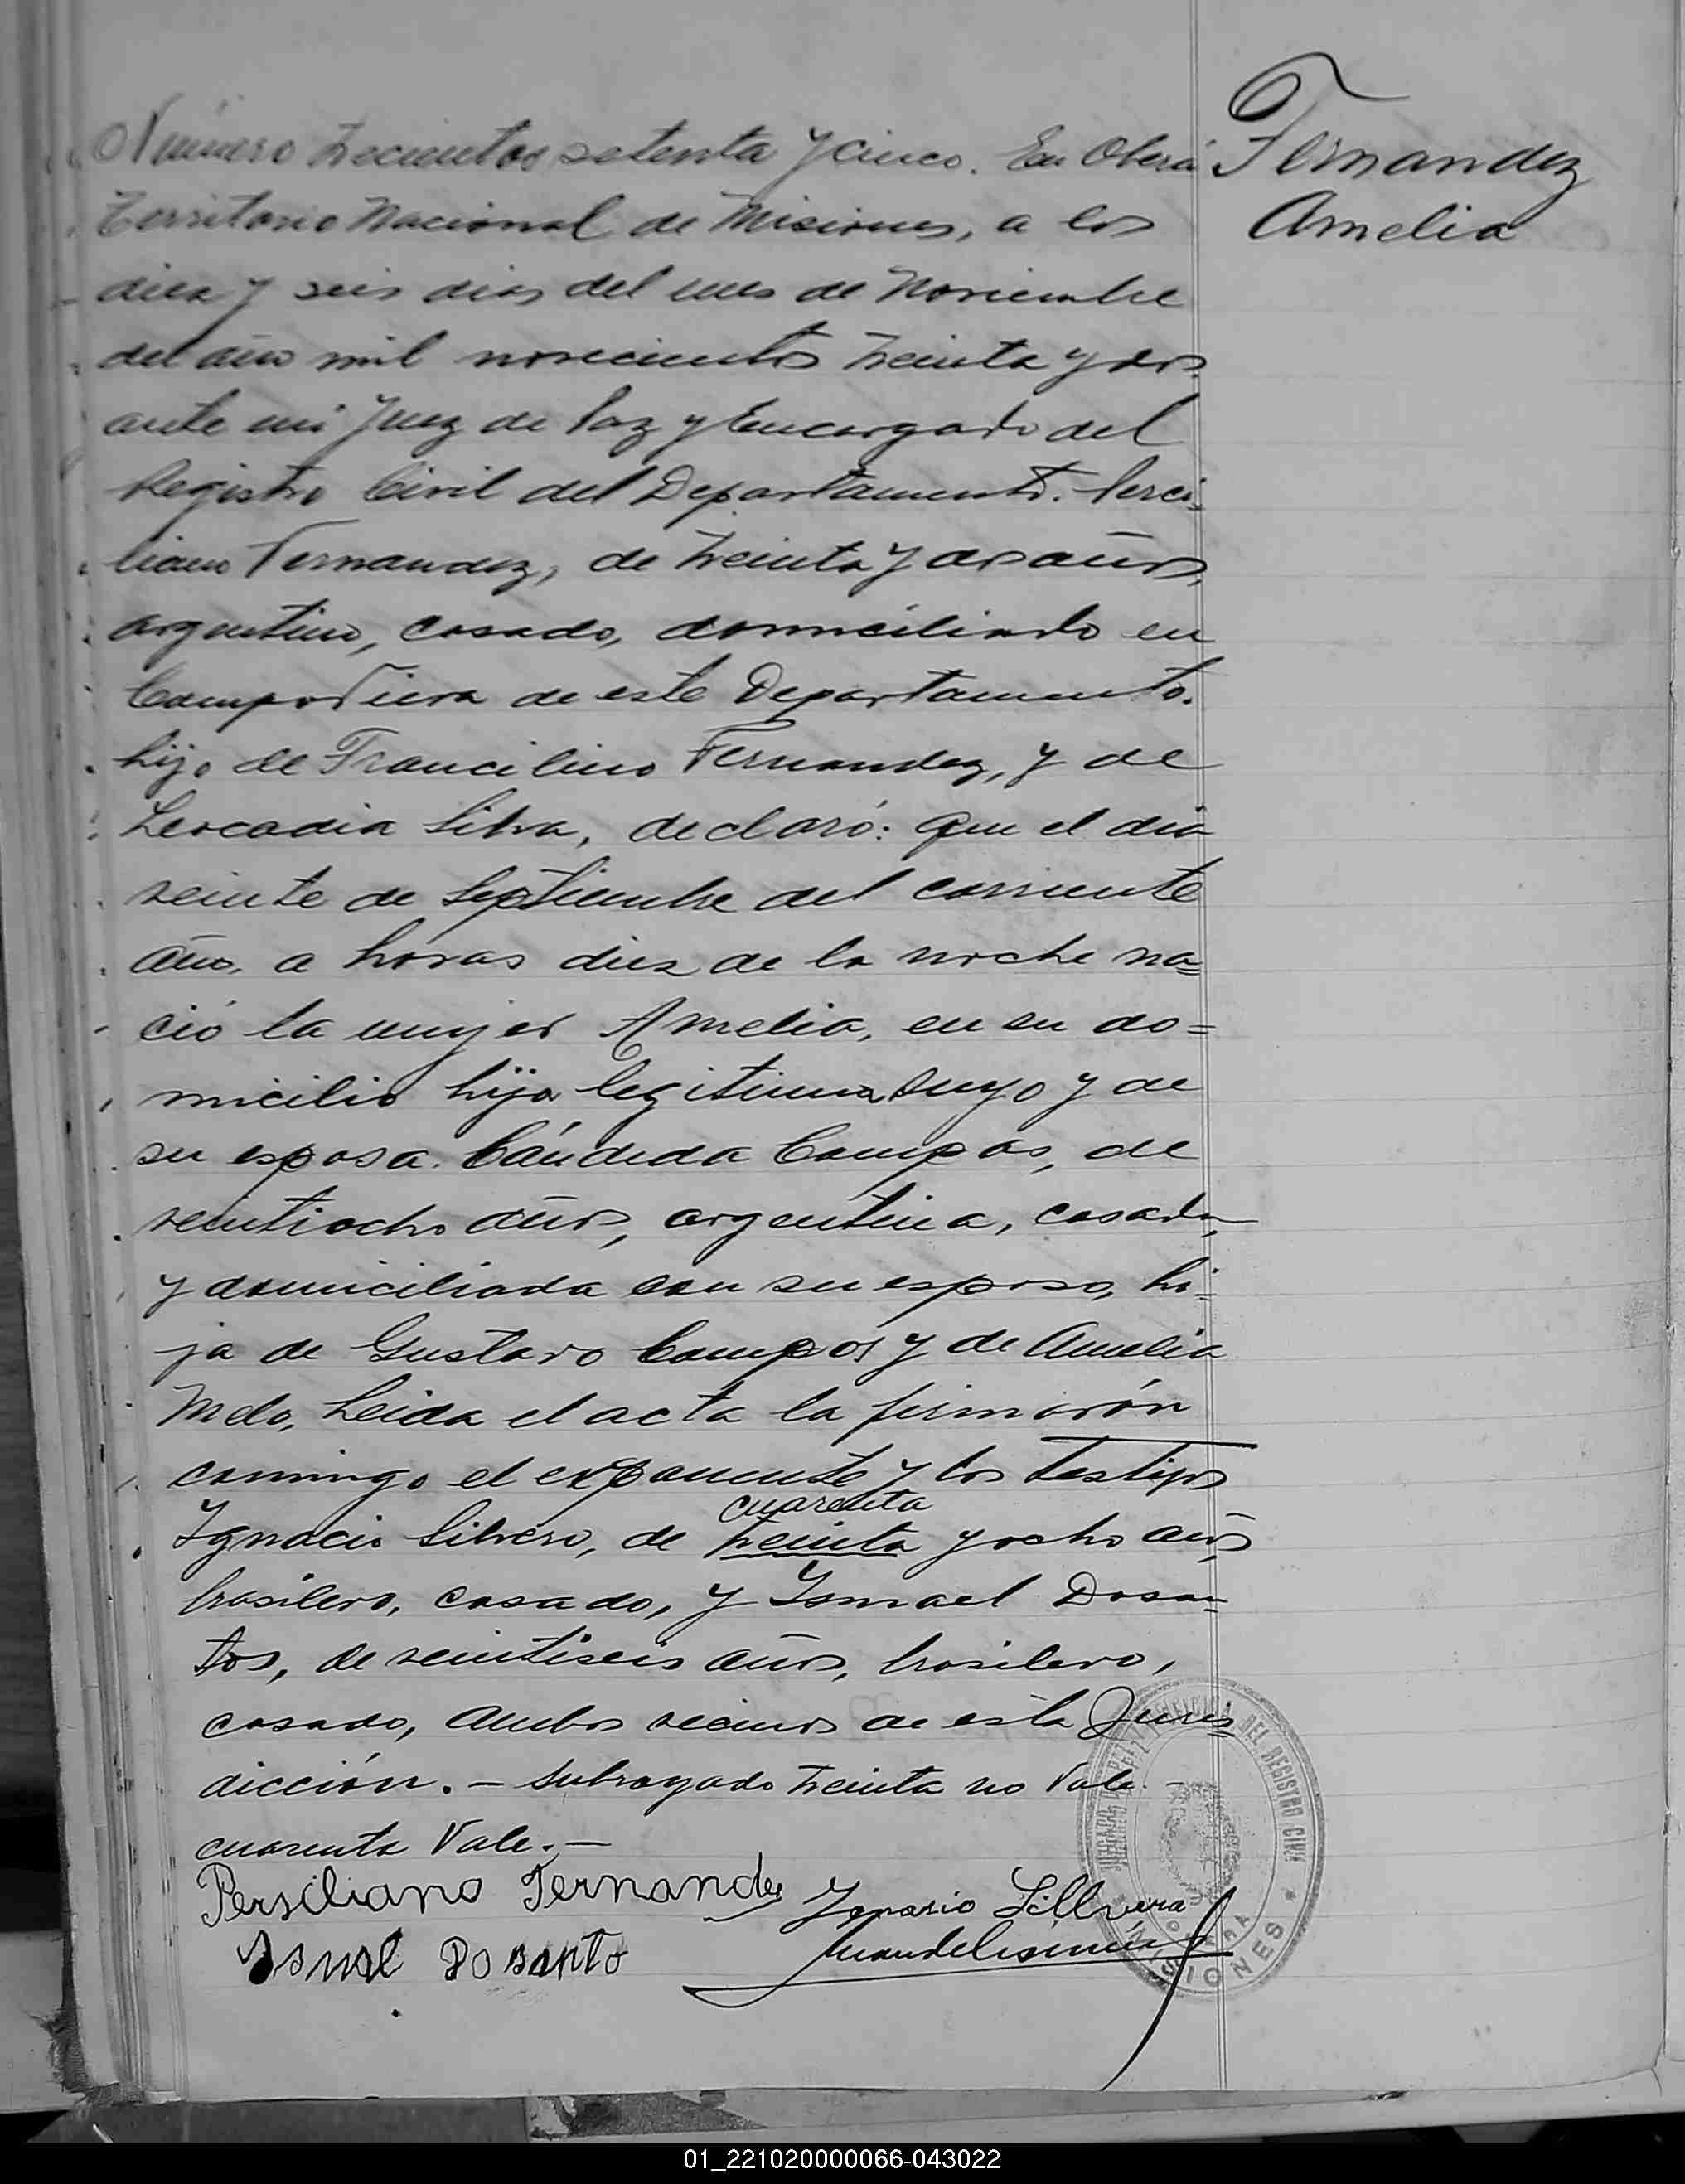 Fernandez
Amelia
Número trecientos setenta y cinco. En Oberá
Territorio Nacional de Misiones, a los
diez y seis dias del mes de Noviembre
del año mil novecientos treinta y dos.
ante mi Juez de Paz y Encargado del
Registro Civil del Departamento. Perci-
liano Fernandez, de treinta y dos años,
argentino, casado, domiciliado en
Campo Viera de este Departamento.
hijo de Francilino Fernandez, y de
Leocadia Silva, declaró: Que el dia
veinte de Septiembre del corriente
año, a horas diez de la noche na=
ció la mujer Amelia, en su do=
micilio hija legitima suya y de
su esposa. Cándida Campos, de
veintiocho años, argentina, casada,
y domiciliada con su esposo, hi-
ja de Gustavo Campos y de Amelia
Melo, Leida el acta la firmarón
comingo el exponente y los testigos
cuarenta
Ignacio Silvero, de treinta y ocho años
brasilero, casado, y Ismael Dosan-
tos, de veintiseis años, brasilero,
casado, ambos vecinos de esta Juris-
dicción. – Subrayado treinta no Vale. –
cuarenta Vale. –
Persiliano Fernandez Ignasio Sillvera
Ismal Dosanto
DEL REGISTRO CIVIL
MISIONES
01_221020000066-043022